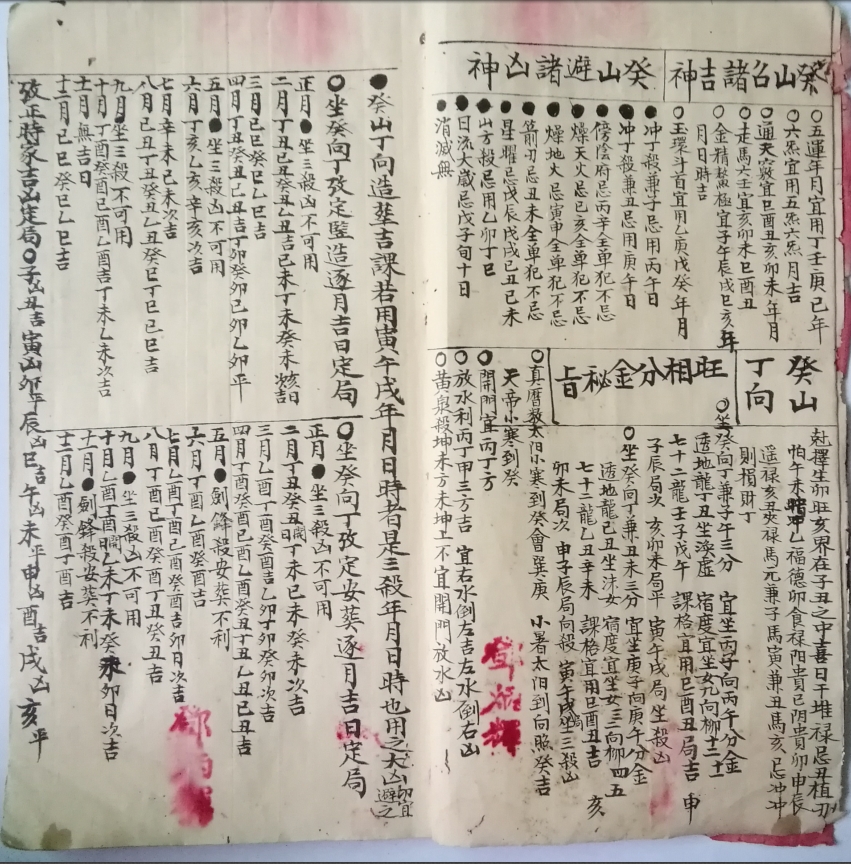 癸山召諸吉神
○五運年月宜用丁壬庚己年
○六炁宜用五炁六炁月吉
○通天竅宜巳酉丑亥卯未年月
○走馬六壬宜亥卯未巳酉丑
○金精鰲極宜子午辰戌巳亥年
月日時吉
○玉環斗首宜用乙庚戊癸年月
癸山避諸凶神
●冲丁殺兼子忌用丙午日
●冲丁殺兼丑忌用庚午日
●傍陰府忌丙辛全單犯不忌
●燥天火忌巳亥全單犯不忌
●燥地火忌寅申全單犯不忌
●箭刃忌丑未全單犯不忌
●星曜忌戊辰戊戌己丑己未
●山方殺忌用乙卯丁巳
●日流大歲忌戊子旬十日
●消滅無
癸山丁向
尅擇生卯旺亥界在子丑之中喜日干堆禄忌丑植刃
怕午未冲乙福德卯食禄陽貴巳阴貴卯申辰
遥禄亥丑癸禄馬元兼子馬寅兼丑馬亥忌冲冲
則損財丁
旺相分金秘旨
○坐癸向丁兼子午三分 宜坐丙子向丙午分金
透地龍丁丑坐渙虛 宿度宜坐女九向柳十二
七十二龍壬子戊午 課格宜用巳酉丑局吉 申
子辰局次 亥卯未局平 寅午戌局坐殺凶
○坐癸向丁兼丑未三分 宜坐庚子向庚午分金
透地龍己丑坐 女 宿度宜坐女三向柳四五
七十二龍乙丑辛未 課格宜用巳酉丑吉 亥
卯未局次 申子辰局向殺 寅午戌坐三殺凶
○真曆数太阳小寒到癸會巽庚 小暑太阳到向照癸吉
天帝小寒到癸
○開門宜丙丁方
○放水利丙丁甲三方吉 宜右水倒左吉左水倒右凶
○黄泉殺坤未方未坤上不宜開門放水凶
●癸山丁向造塟吉課若用寅午戌年月日時者是三殺年月日時也用之大凶宜避之
○坐癸向丁攷定竪造逐月吉日定局
正月●坐三殺凶不可用
二月丁丑己丑癸丑乙丑吉己未丁未癸未 日
三月己巳癸巳乙巳吉
四月丁丑癸丑乙丑己丑吉丁卯癸卯己卯乙卯平
五月●坐三殺凶不可用
六月丁亥乙亥辛亥次吉
七月辛未己未次吉
八月己丑丁丑癸丑乙丑癸巳丁巳己巳吉
九月●坐三殺不可用
十月丁酉癸酉己酉乙酉吉丁未乙未次吉
十一月無吉日
十二月己巳癸巳乙巳吉
○坐癸向丁攷定安葬逐月吉日定局
正月●坐三殺凶不可用
二月丁丑癸丑日 丁未己未癸未次吉
三月乙酉丁酉癸酉吉乙卯丁卯癸卯次吉
四月丁酉癸酉乙酉己酉癸丑丁丑乙丑己丑吉
五月●劍鋒殺安葬不利
六月丁酉乙酉癸酉吉
七月乙酉丁酉己酉癸酉吉卯日次吉
八月丁酉己酉癸酉丁丑癸丑吉
九月●坐三殺凶不可用
十月乙酉丁酉 乙未丁未癸未卯日次吉
十一月●劍鋒殺安葬不利
十二月乙酉癸酉丁酉吉
攷正時家吉凶定局○子凶丑吉寅凶卯平辰凶巳吉午凶未平申凶酉吉戌凶亥平